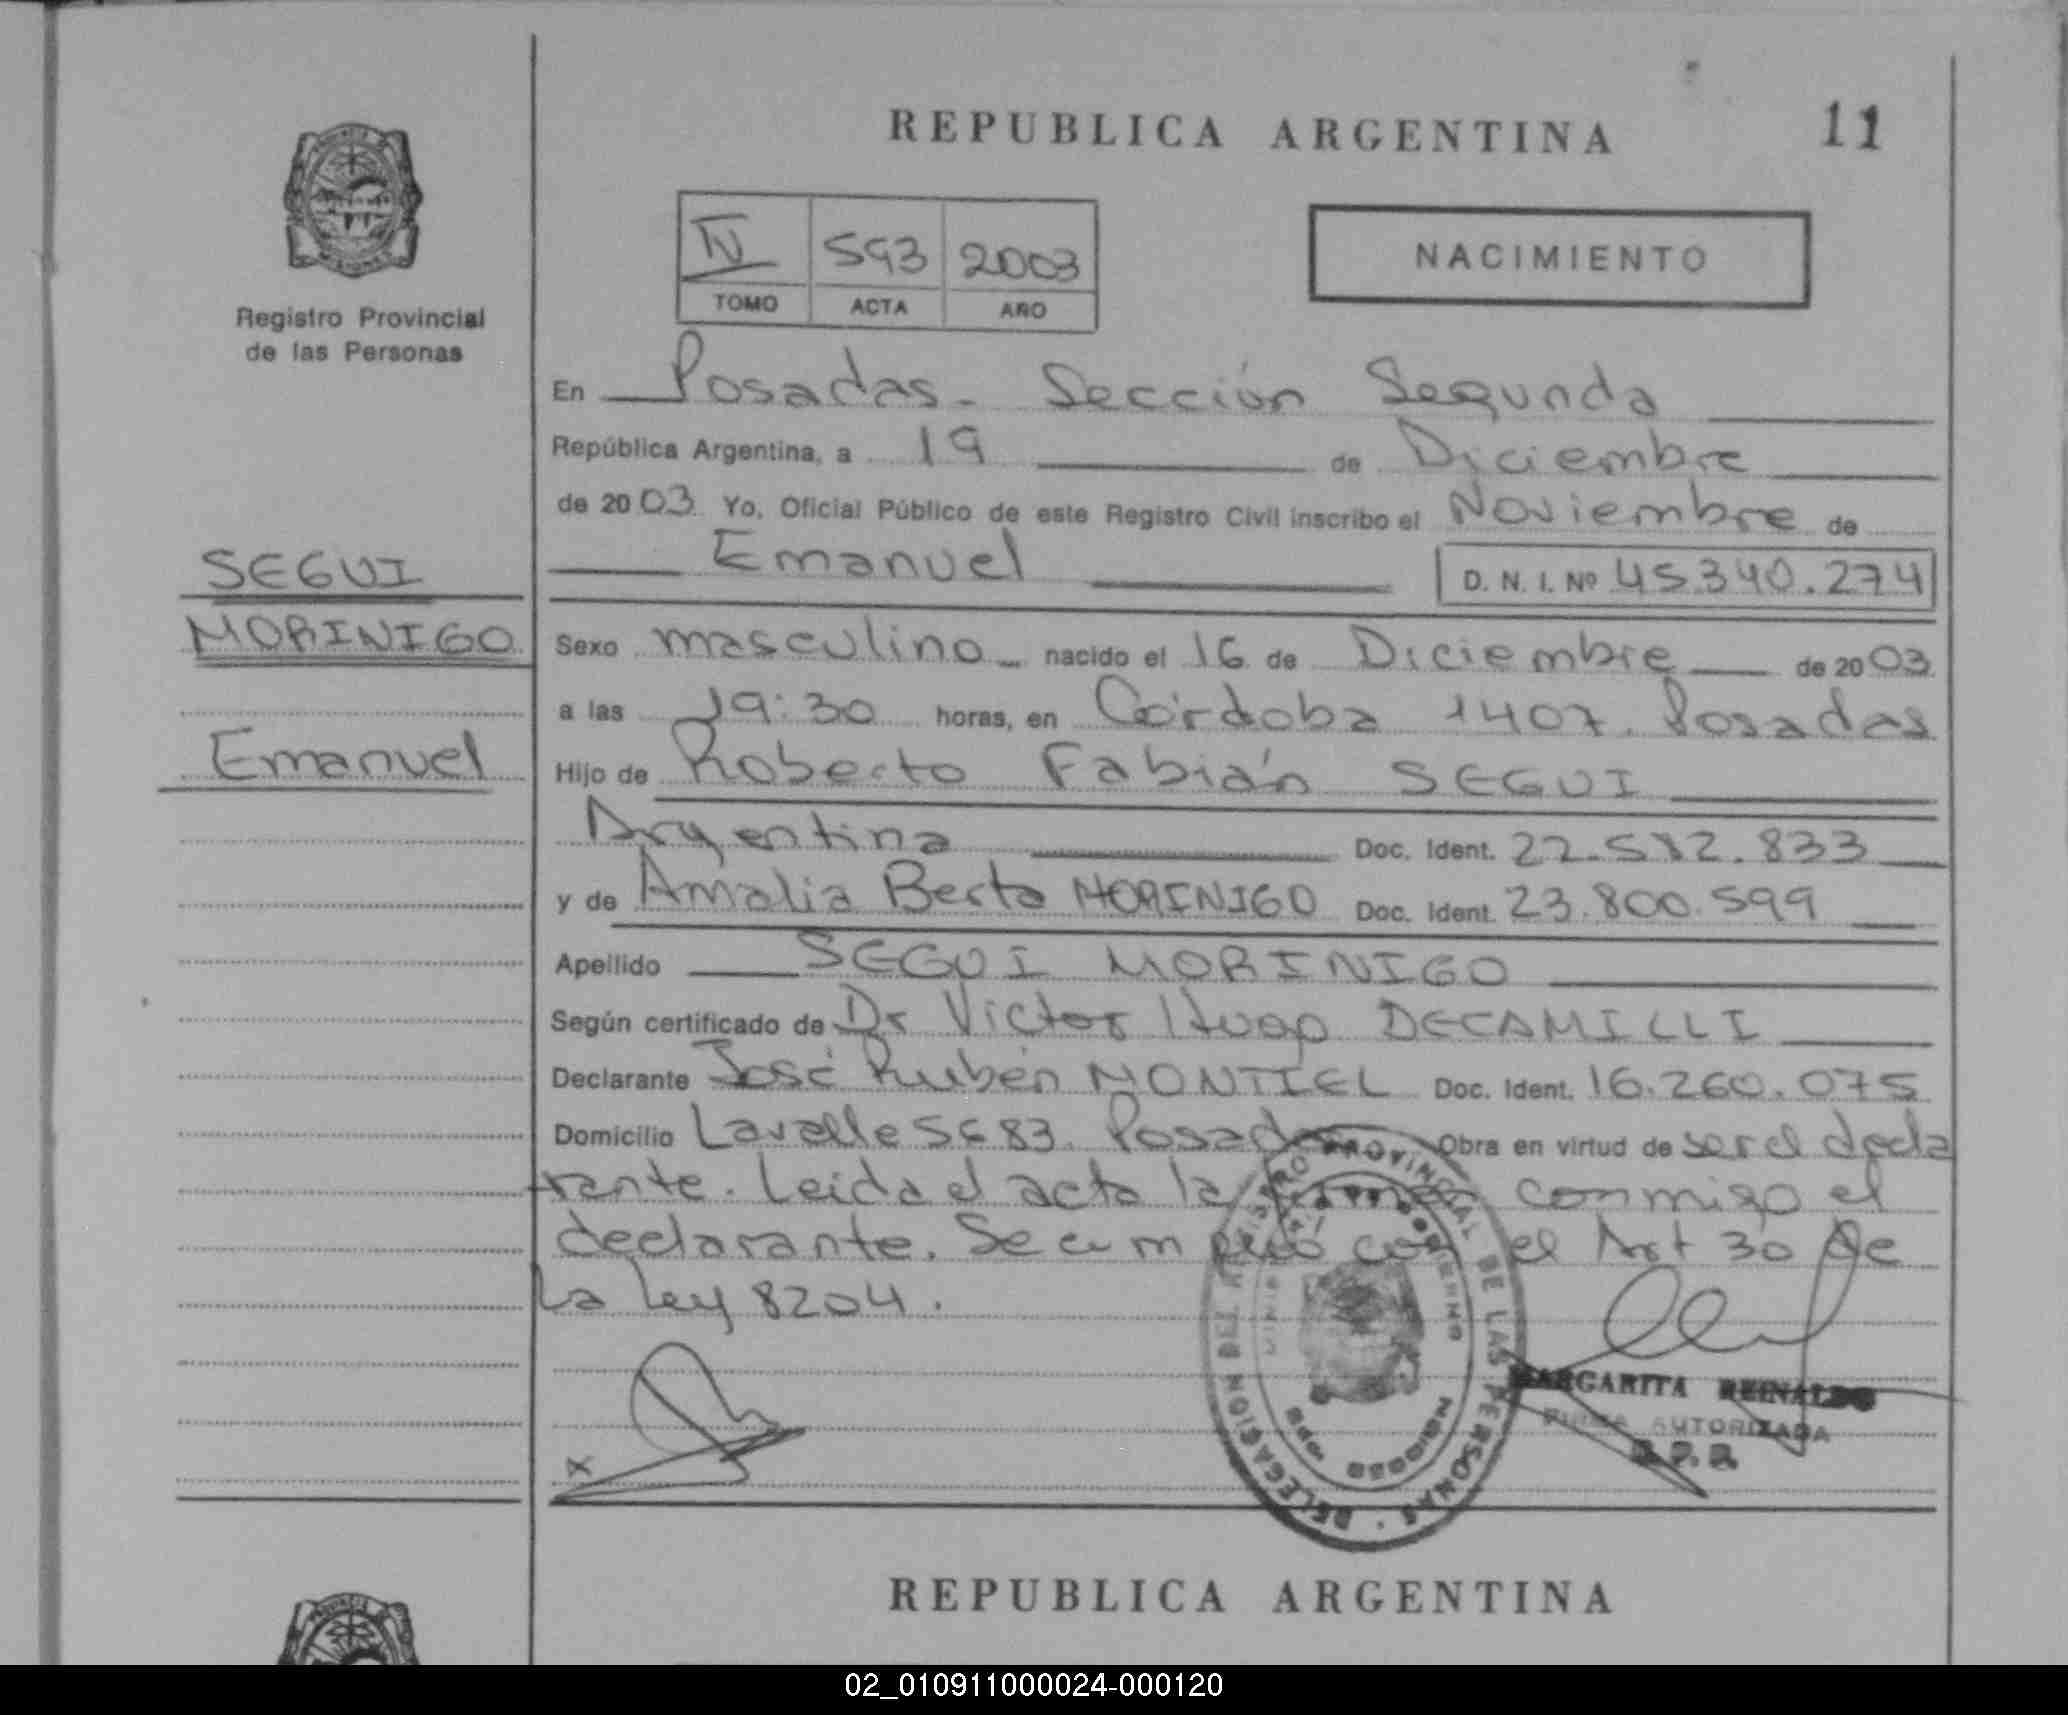 REPUBLICA ARGENTINA
11
Registro Provincial
de las Personas
IV 593 2003
TOMO ACTA AÑO
NACIMIENTO
En Posadas - Sección Segunda
República Argentina, a 19 de Diciembre
de 2003 Yo, Oficial Público de este Registro Civil inscribo el Noviembre de
Emanuel D. N. I. Nº 45.340.274
SEGUI
MORINIGO
Emanuel
Sexo masculino - nacido el 16 de Diciembre de 2003
a las 19:30 horas, en Córdoba 1407. Posadas
Hijo de Roberto Fabián SEGUI
Argentina Doc. Ident. 22.512.833
y de Amalia Berta MORINIGO Doc. Ident. 23.800.599
Apellido SEGUI MORINIGO
Según certificado de Dr Victor Hugo DECAMILLI
Declarante José Rubén MONTIEL Doc. Ident. 16.260.075
Domicilio Lavalle 5683. Posadas Obra en virtud de ser el decla
rante. Leida el acta la firman conmigo el
declarante. Se cumplió con el Art 30 de
la ley 8204.
REGISTRO PROVINCIAL DE LAS PERSONAS · DELEGACION
MARGARITA REINALDO
FIRMA AUTORIZADA
REPUBLICA ARGENTINA
02_010911000024-000120